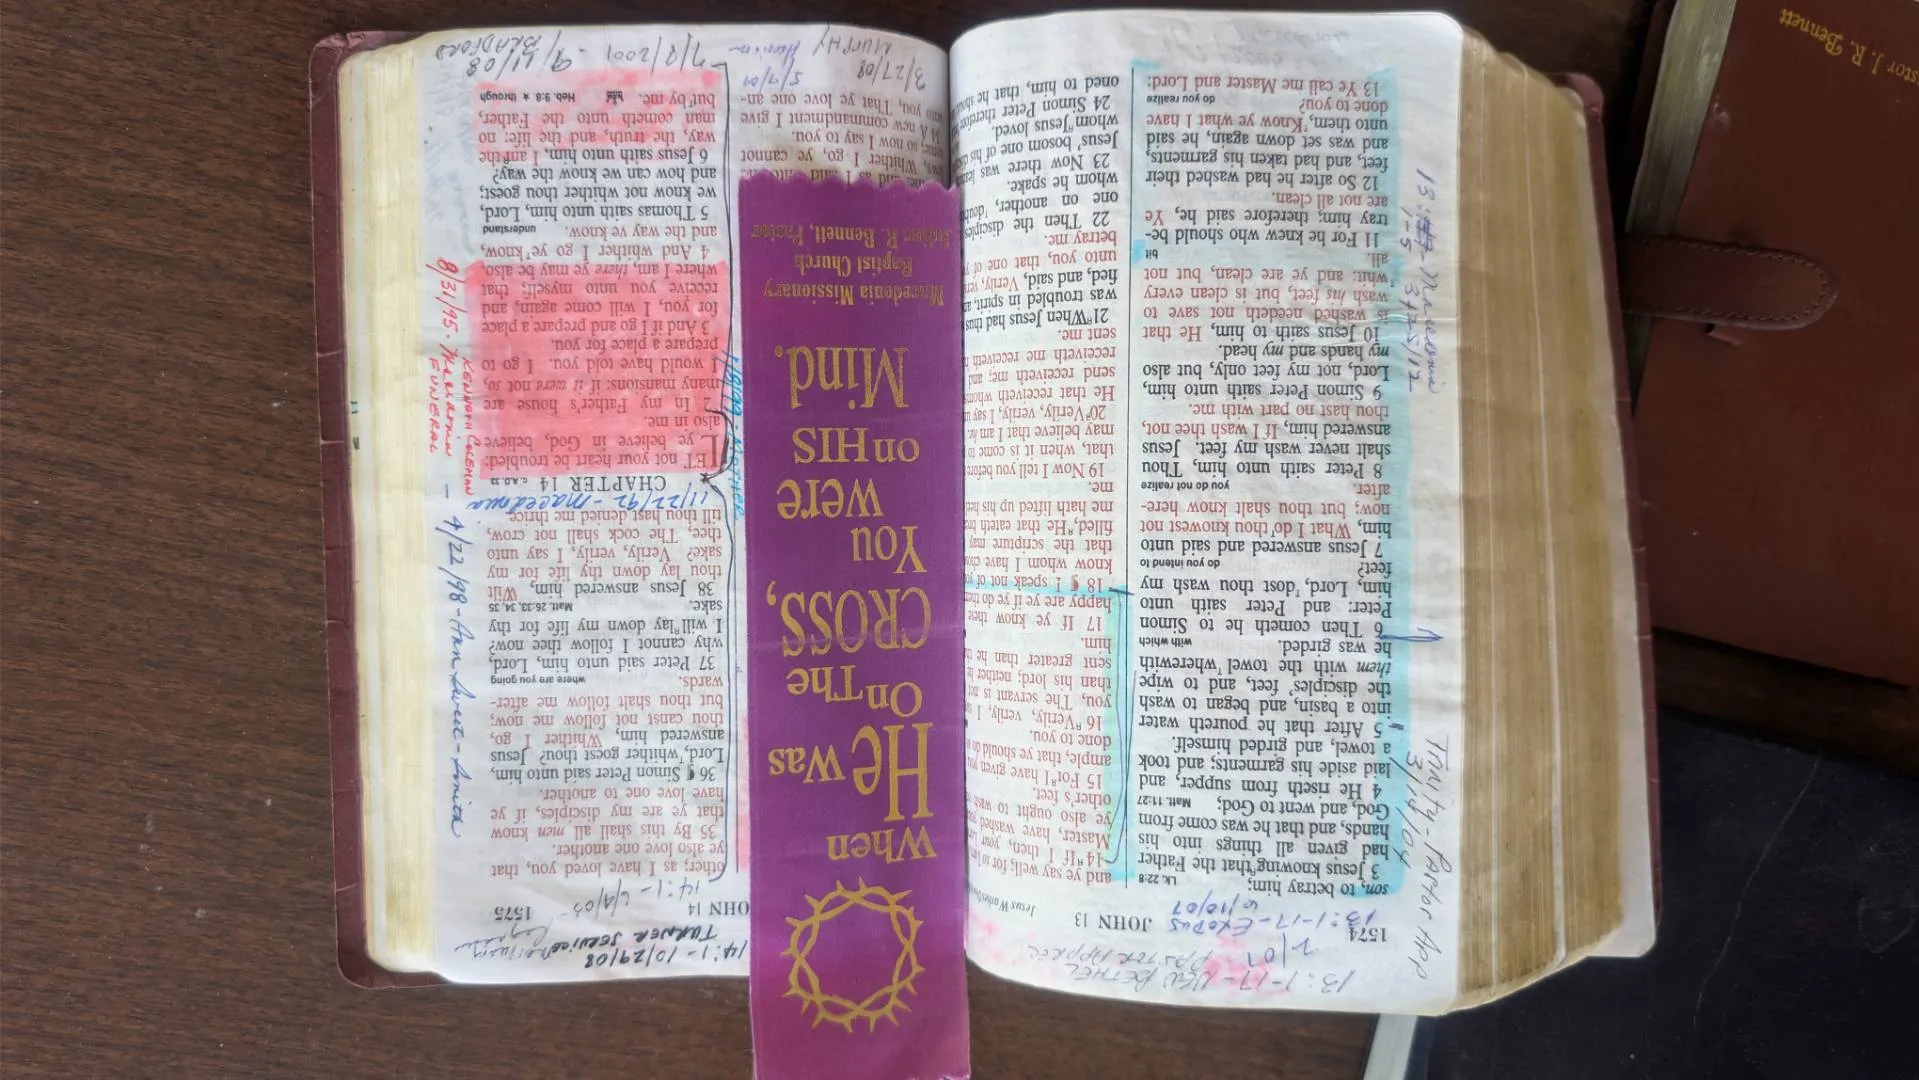 13:1-17 - NEW BETHEL
PASTOR APPREC
2/07
13:1-17 - EXODUS
6/10/07
1574
JOHN 13
Jesus Washes
son, to betray him;
Lk. 22:8
3 Jesus knowing that the Father
had given all things into his
hands, and that he was come from
God, and went to God;
Matt. 11:27
4 He riseth from supper, and
laid aside his garments; and took
a towel, and girded himself.
5 After that he poureth water
into a basin, and began to wash
the disciples' feet, and to wipe
them with the towel wherewith
he was girded.
with which
6 Then cometh he to Simon
Peter: and Peter saith unto
him, Lord, dost thou wash my
feet?
do you intend to
7 Jesus answered and said unto
him, What I do thou knowest not
now; but thou shalt know here-
after.
you do not realize
8 Peter saith unto him, Thou
shalt never wash my feet. Jesus
answered him, If I wash thee not,
thou hast no part with me.
9 Simon Peter saith unto him,
Lord, not my feet only, but also
my hands and my head.
10 Jesus saith to him, He that
is washed needeth not save to
wash his feet, but is clean every
whit: and ye are clean, but not
all.
bit
11 For he knew who should be-
tray him; therefore said he, Ye
are not all clean.
12 So after he had washed their
feet, and had taken his garments,
and was set down again, he said
unto them, Know ye what I have
done to you?
do you realize
13 Ye call me Master and Lord:
Trinity - Pastor App
3/14/04
13:
1-5
Macedonia
3/25/12
and ye say well; for
14 If I then, your
Master, have washed
ye also ought to wash
other's feet.
15 For I have given you
ample, that ye should do
done to you.
16 Verily, verily, I
you, The servant is not
than his lord; neither he
sent greater than he
him.
17 If ye know these
happy are ye if ye do
18 ¶ I speak not of
know whom I have
that the scripture may
filled, He that eateth
me hath lifted up his
me.
19 Now I tell you before
that, when it is come to
may believe that I am
20 Verily, verily, I say
He that receiveth
send receiveth me; and
receiveth me receiveth
sent me.
21 When Jesus had thus
was troubled in spirit,
fied, and said, Verily,
unto you, that one of
betray me.
22 Then the disciples
one on another,
whom he spake.
23 Now there was
Jesus' bosom one of his
whom Jesus loved.
24 Simon Peter therefore
oned to him, that he
When
He was
On The
CROSS,
You
were
on HIS
Mind.
Macedonia Missionary
Baptist Church
R. Bennett, Pastor
14:1 - 10/29/08
TURNER SERVICE
14:1 -
OHN 14
1575
other; as I have loved you, that
ye also love one another.
35 By this shall all men know
that ye are my disciples, if ye
have love one to another.
36 ¶ Simon Peter said unto him,
Lord, whither goest thou? Jesus
answered him, Whither I go,
thou canst not follow me now;
but thou shalt follow me after-
wards.
where are you going
37 Peter said unto him, Lord,
why cannot I follow thee now?
I will lay down my life for thy
sake.
Matt. 26:33, 34, 35
38 Jesus answered him, Wilt
thou lay down thy life for my
sake? Verily, verily, I say unto
thee, The cock shall not crow,
till thou hast denied me thrice.
11/22/92 - Macedonia
CHAPTER 14
LET not your heart be troubled:
ye believe in God, believe
also in me.
2 In my Father's house are
many mansions: if it were not so,
I would have told you. I go to
prepare a place for you.
3 And if I go and prepare a place
for you, I will come again, and
receive you unto myself; that
where I am, there ye may be also.
4 And whither I go ye know,
and the way ye know.
understand
5 Thomas saith unto him, Lord,
we know not whither thou goest;
and how can we know the way?
6 Jesus saith unto him, I am the
way, the truth, and the life: no
man cometh unto the Father,
but by me.
Heb. 9:8 ★ through
4/22/98 -
KENNETH COLEMAN
8/31/95.
FUNERAL
Whither I go, ye cannot
come; so now I say to you.
34 A new commandment I give
unto you, That ye love one an-
5/9/07
3/27/08
MURPHY
7/8/2001
9/11/08
BRADFORD
J. R. Bennett